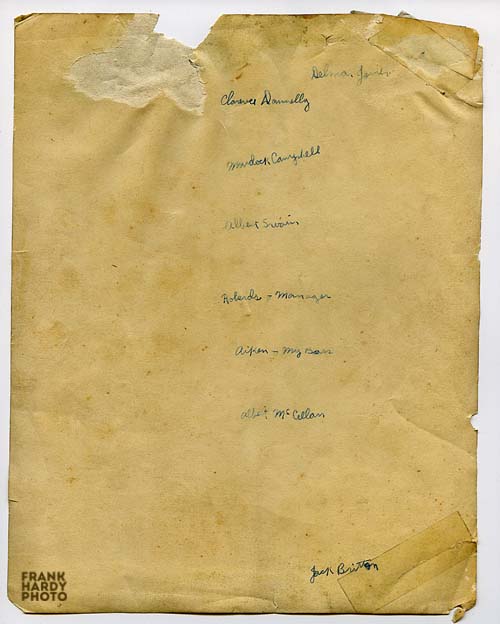 Delmas Jones
Clarence Donnelly
Murdock Campbell
Albert Swain
Roberds - Manager
Aiken - My Boss
Albert McCellan
Jack Britton
FRANK
HARDY
PHOTO